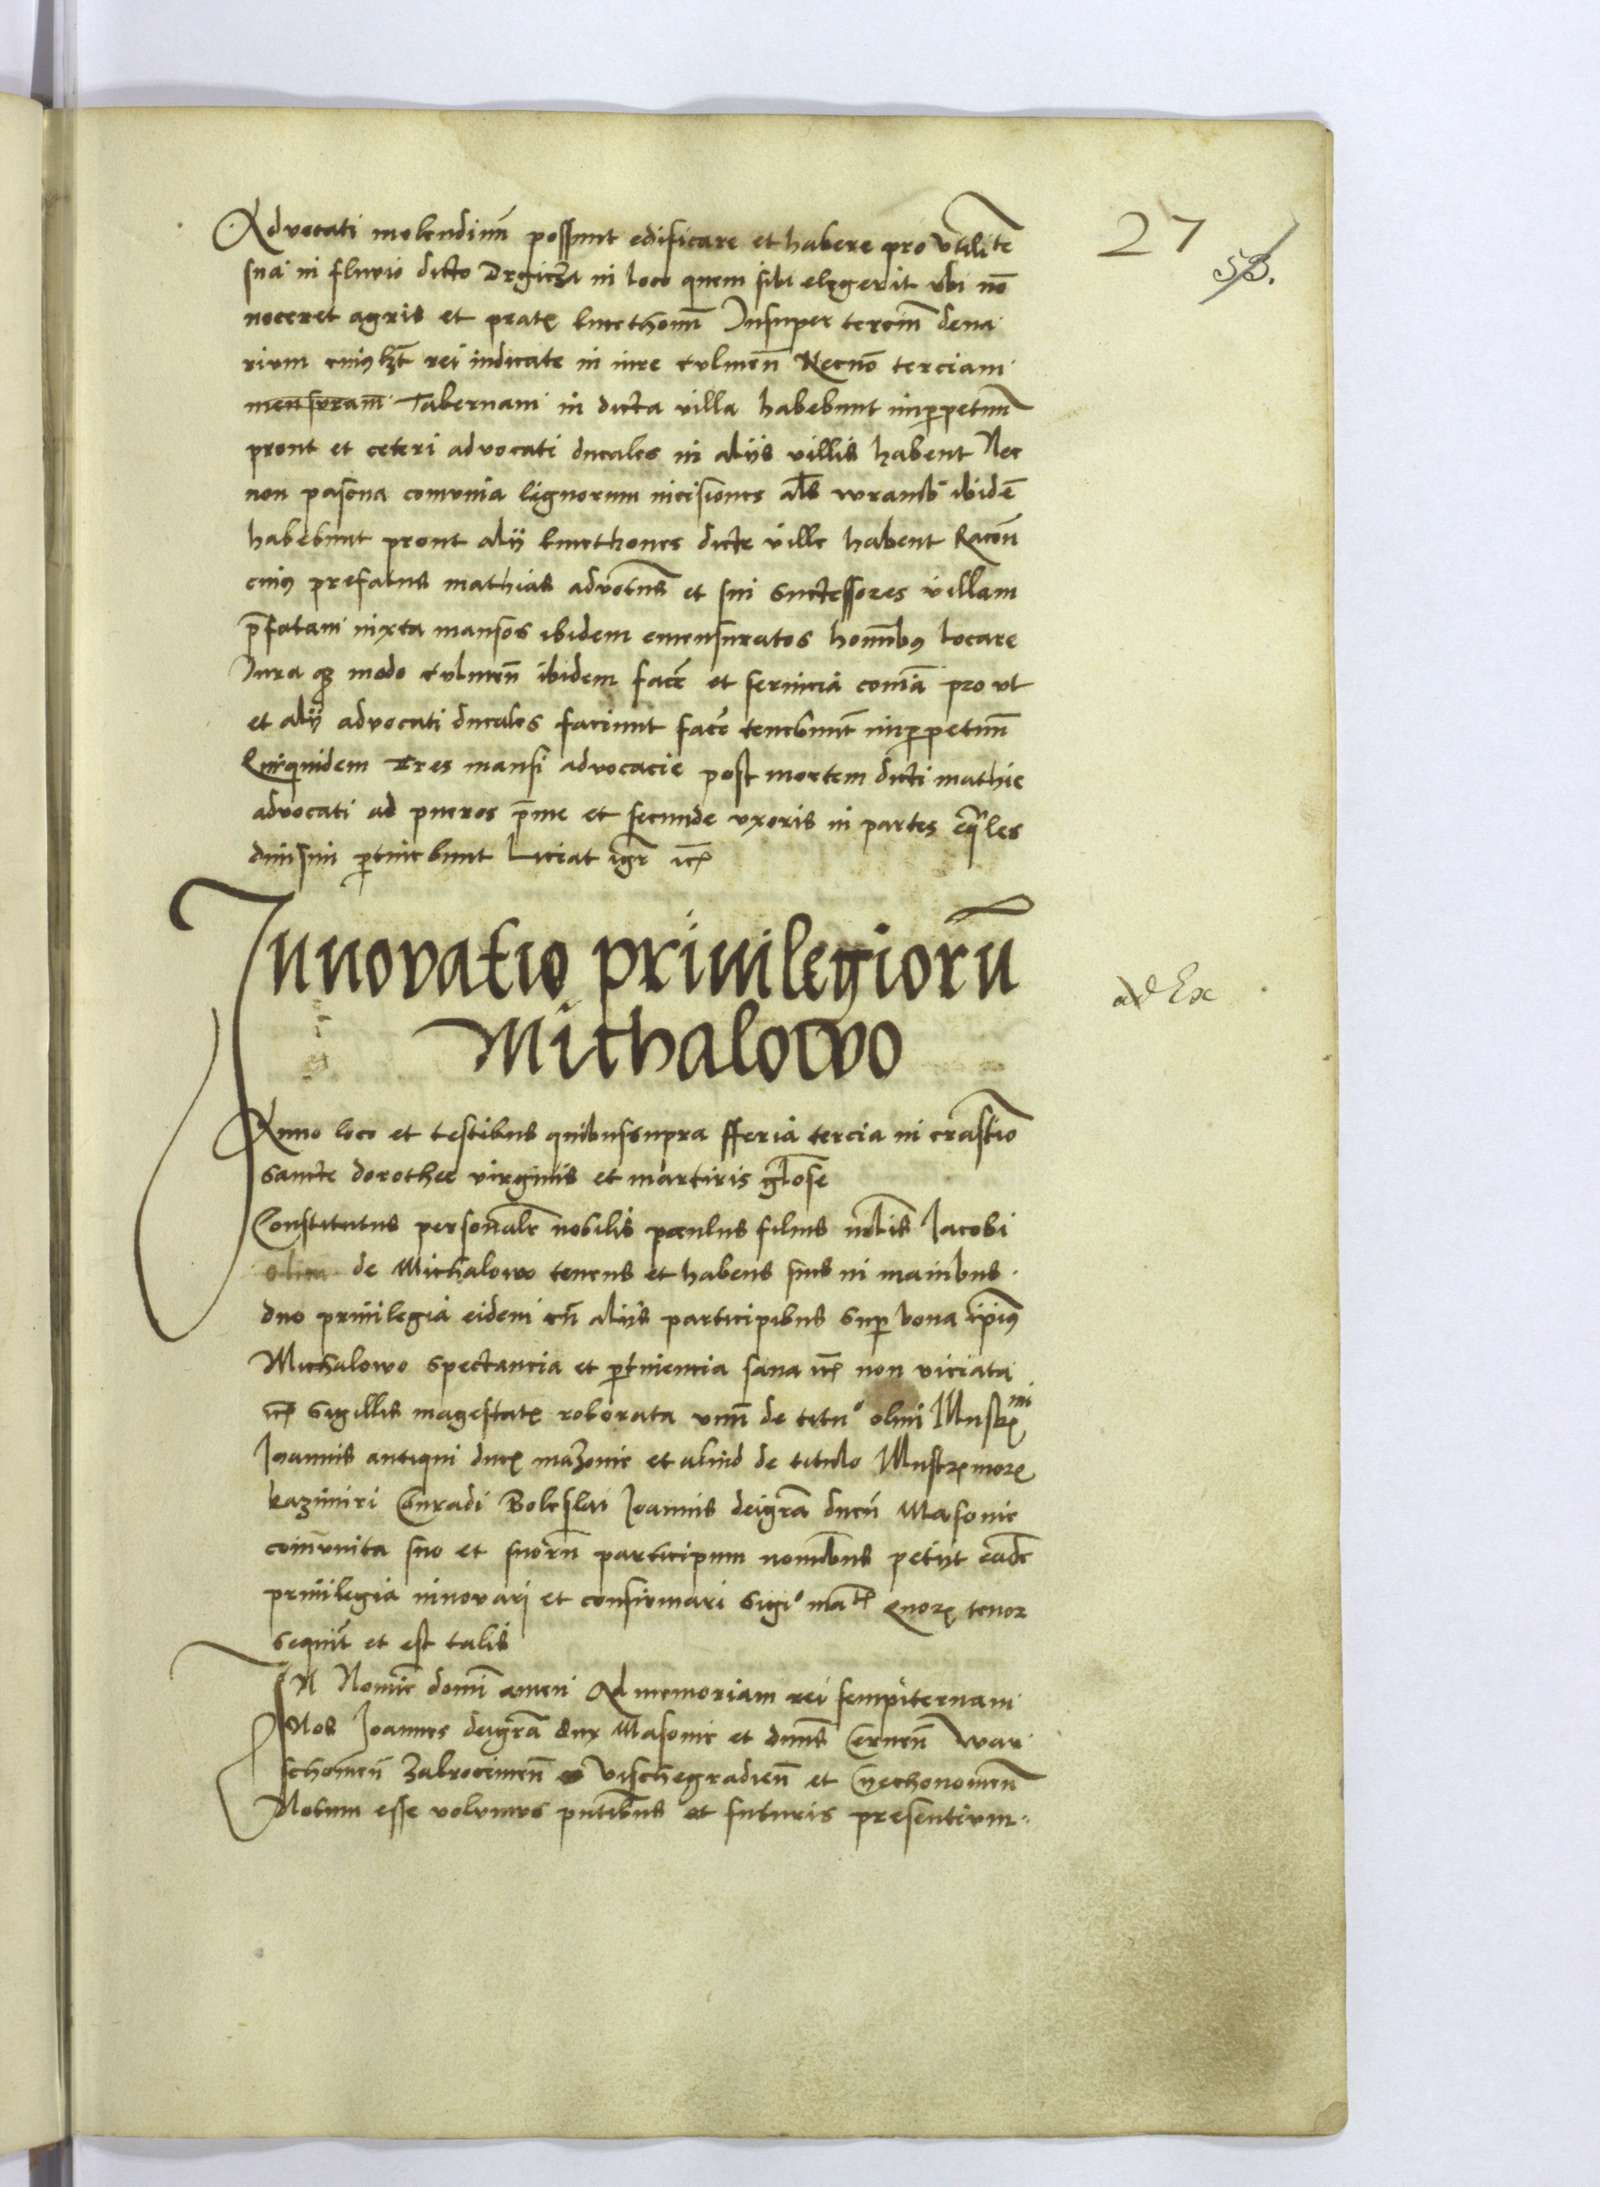 27
53.
Advocati molendinū possunt edificare et habere pro utilite
sua in fluvio dicto Drgicza in loco quem sibi elegerit ubi nō
noceret agris et prat kmethonū Insuper terciū dena
rium cuiuslzt rei iudicate in iure culmeñ Necnō terciam
mensuram Tabernam in dicta villa habebunt inperpetuū
prout et ceteri advocati ducales in aliis villis habent Nec
non pascua comunia lignorum incisiones als wramb ibidē
habebunt prout alij kmethones dicte ville habent Racōē
cuius prefatus mathias advocatus et sui successores villam
p̄fatam iuxta mansos ibidem emensuratos hominibus locare
Iura q3 modo culmeñ ibidem facē et servicia comīa prout
et alij advocati ducales faciunt facē tenebunt inperpetuū
Quiquidem Tres mansi advocacie post mortem dicti mathie
advocati ad pueros p̄me et secunde uxoris in partes eq̄les
divisim ptinebunt
Innovatio privilegiorū
Michalowo
ad Ex
Anno loco et testibus quibussupra fferia tercia in crastīo
sancte dorothee virginis et martiris gl̄ose
Constitutus personalr̄ nobilis paulus filius nobīls Jacobi
de Michalowo tenens et habens suis in manibus
duo privilegia eidem cū aliis participibus sup bona ipius
Michalowo spectancia et ptinencia sana non viciata
sigillis magestat roborata unū de titu° olim Illustrmi
Joannis antiqui duc mazovie et aliud de titulo Illustrmor
kazimiri Conradi Boleslai Joannis deigrā ducū Masovie
coniunita suo et suorū participum nominibus petijt eadē
privilegia innovari et confirmari sigi° Quor tenor
sequit̄ et est talis
IN Nomīe domī amen Ad memoriam rei sempiternam
Nos Joannes deigrā dux Masovie et dnūs Cerneñ War
schovieñ Zakrocimeñ Vischegradieñ et Czechonovieñ
Notum esse volumus pntibus et futuris presentium